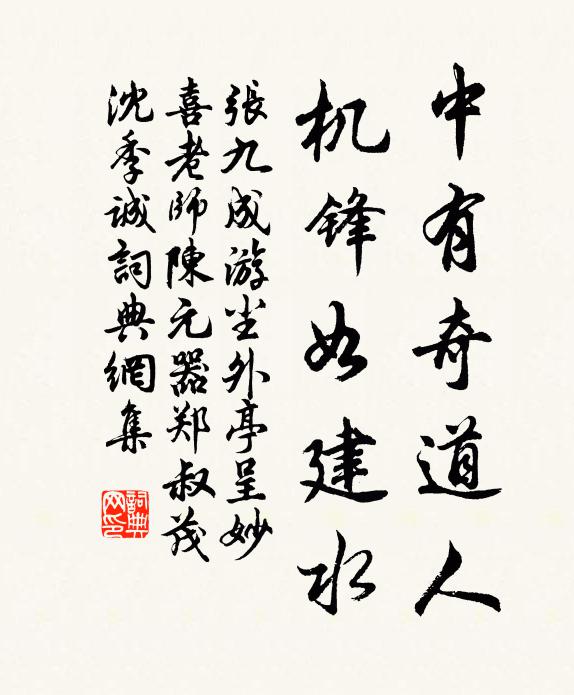 中有奇道人
机锋如建水
張九成游尘外亭呈妙
喜老師陳元器郑叔茂
沈季诚詞典網集
詞典网印